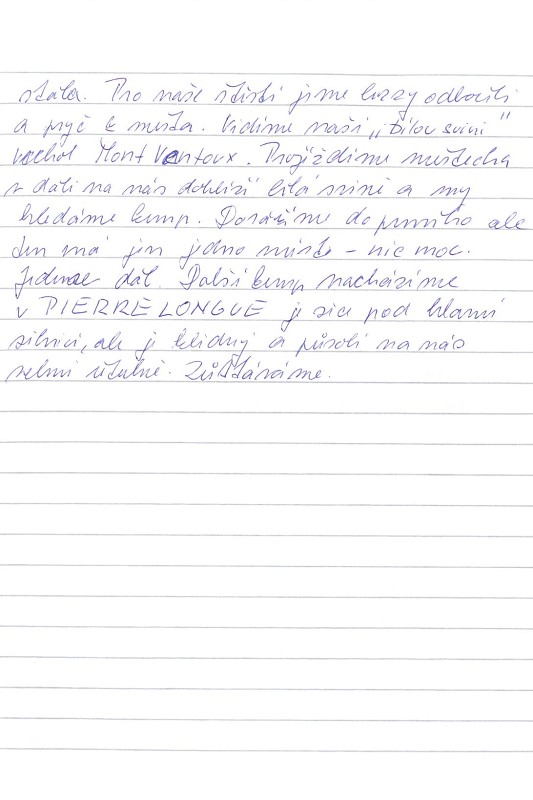 stála. Pro naše štěstí jsme brzy odbočili
a pryč z města. Vidíme naši „Bílou svini“
vrchol Mont Ventoux. Projíždíme městečka
v dáli na nás dohlíží bílá svině a my
hledáme kemp. Dorážíme do prvního ale
ten má jen jedno místo – nic moc.
Jedeme dál. Další kemp nacházíme
v PIERRE LONGUE je sice pod hlavní
silnicí, ale je klidný a působí na nás
velmi útulně. Zůstáváme.